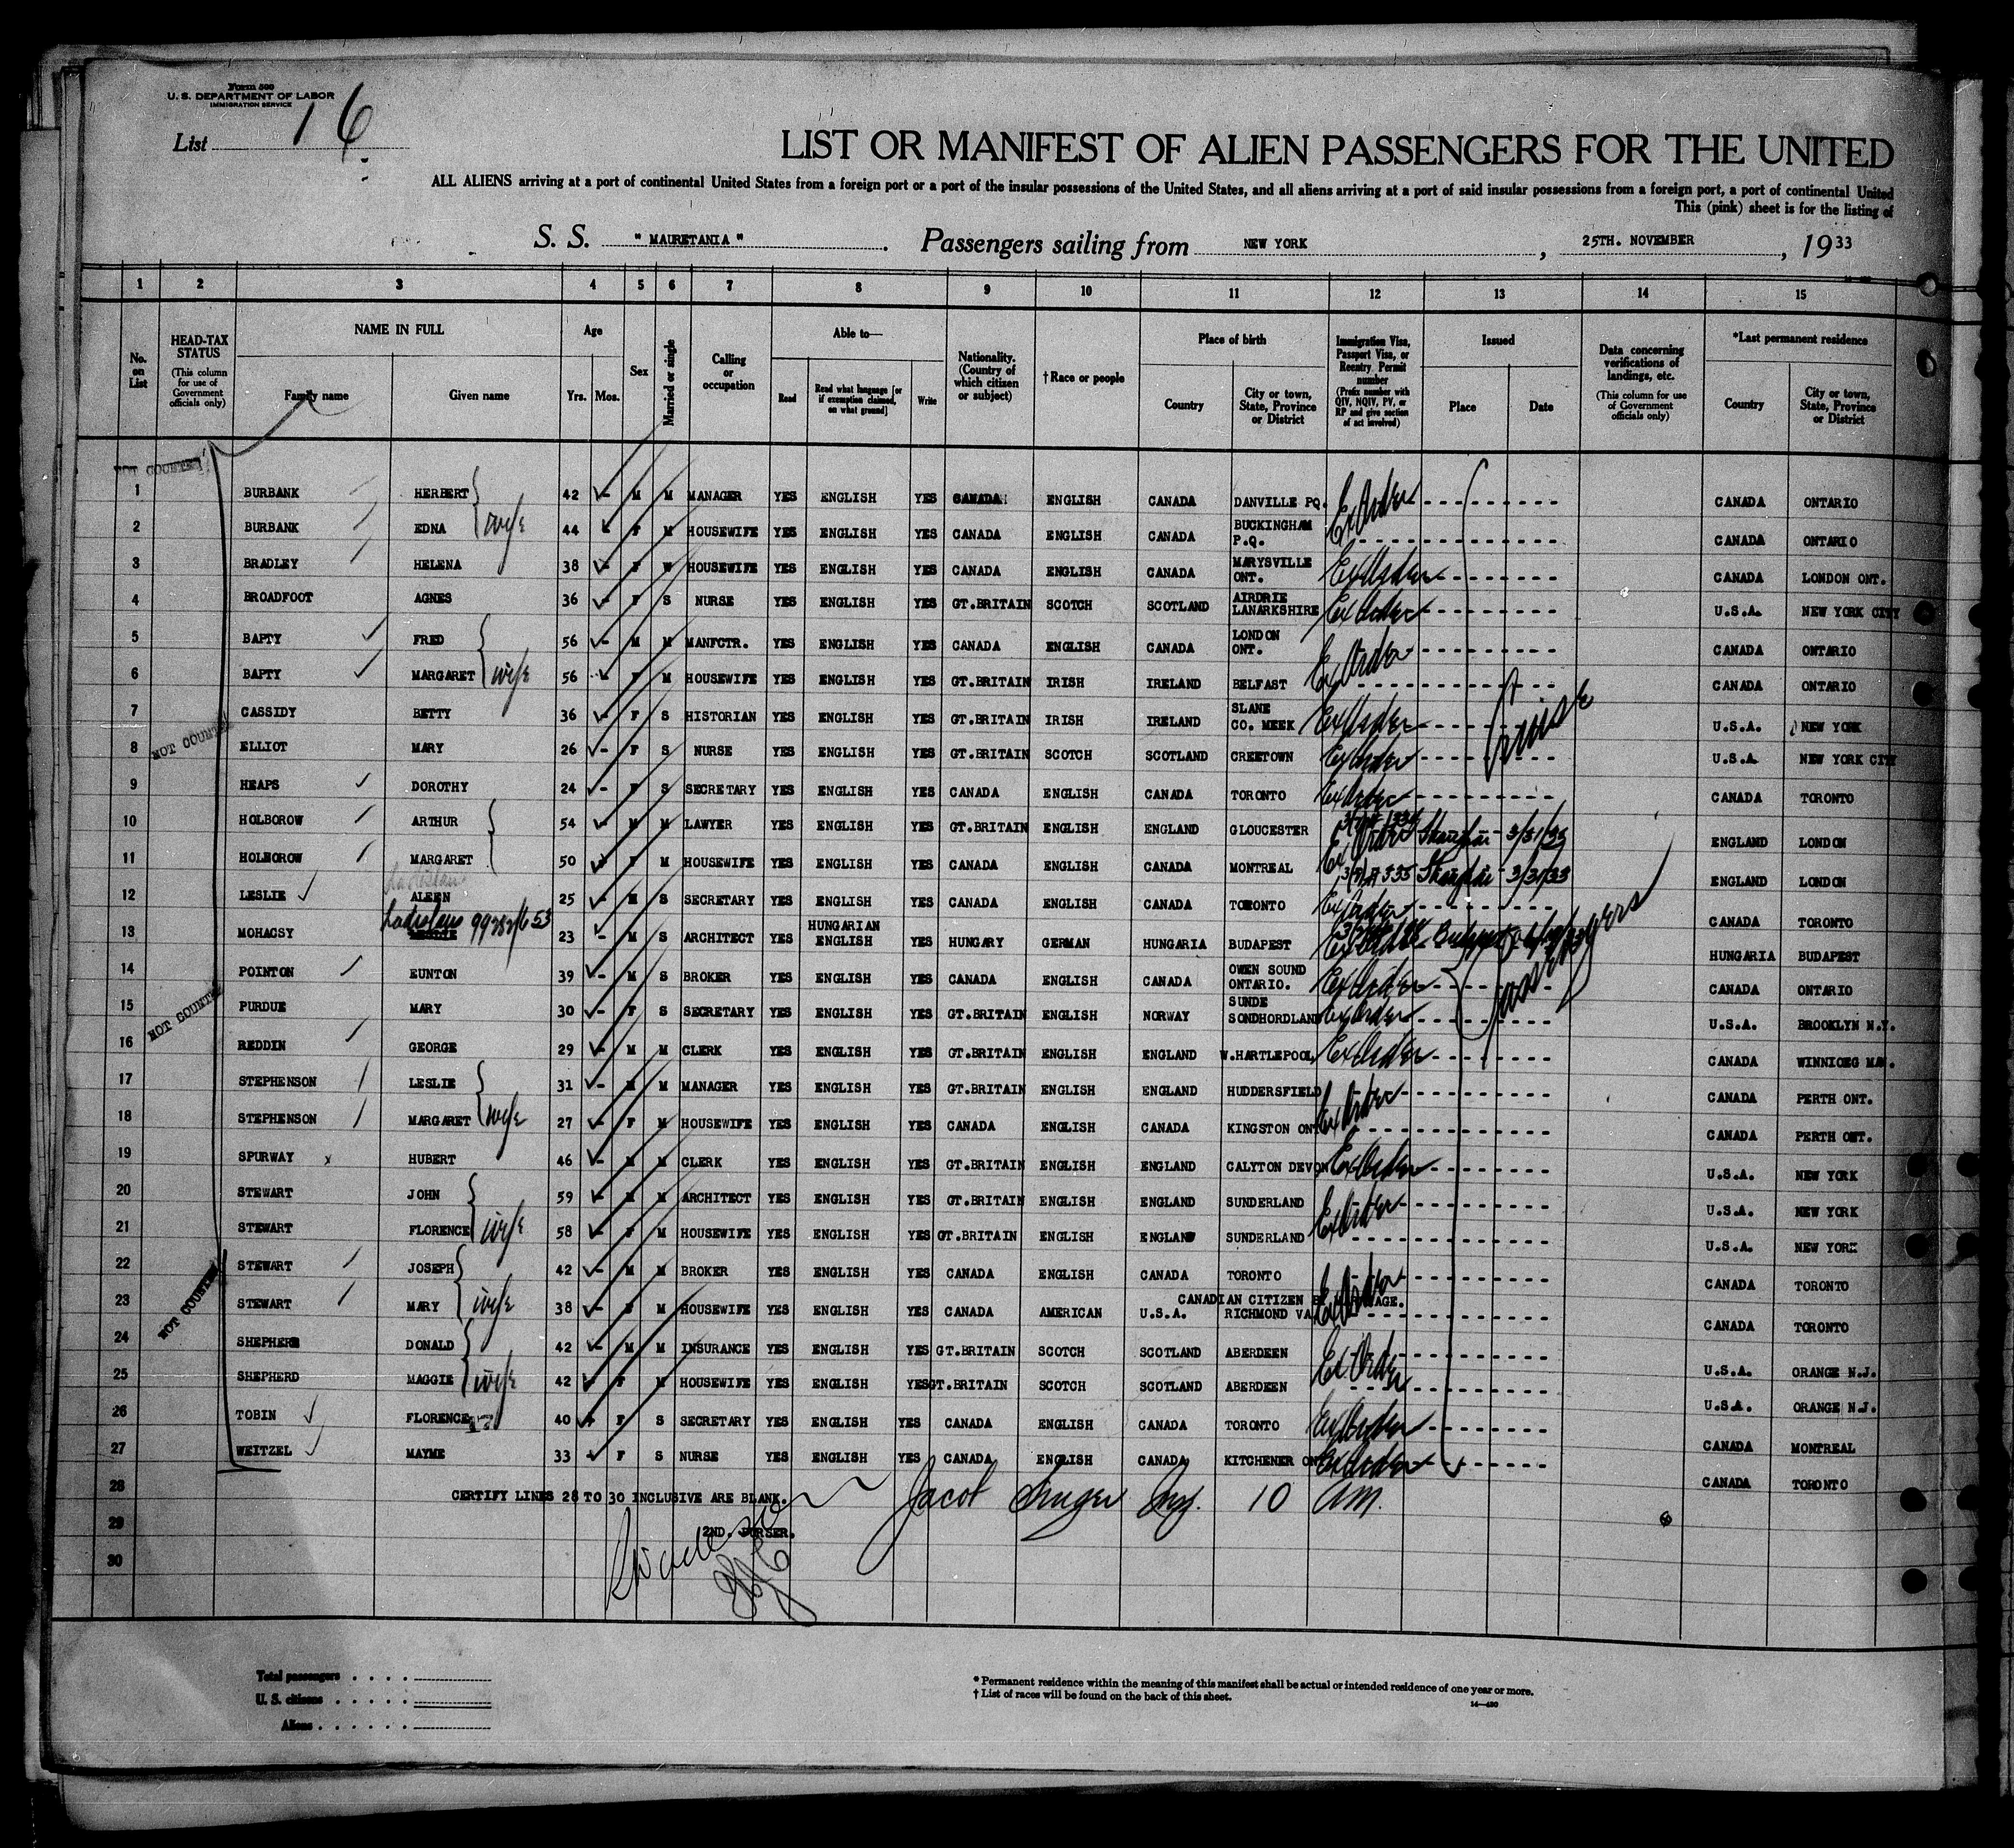 Form 500
U. S. DEPARTMENT OF LABOR
IMMIGRATION SERVICE
List 16
LIST OR MANIFEST OF ALIEN PASSENGERS FOR THE UNITED
ALL ALIENS arriving at a port of continental United States from a foreign port or a port of the insular possessions of the United States, and all aliens arriving at a port of said insular possessions from a foreign port, a port of continental United
This (pink) sheet is for the listing of
S. S. "MAURETANIA". Passengers sailing from NEW YORK, 25TH. NOVEMBER, 1933
1 2 3 4 5 6 7 8 9 10 11 12 13 14 15
No. on List
HEAD-TAX STATUS (This column for use of Government officials only)
NAME IN FULL
Family name Given name
Age
Yrs. Mos.
Sex
Married or single
Calling or occupation
Able to—
Read Read what language [or if exemption claimed, on what ground] Write
Nationality. (Country of which citizen or subject)
†Race or people
Place of birth
Country City or town, State, Province or District
Immigration Visa, Passport Visa, or Reentry Permit number (Prefix number with QIV, NQIV, PV, or RP and give section of act involved)
Issued
Place Date
Data concerning verifications of landings, etc. (This column for use of Government officials only)
*Last permanent residence
Country City or town, State, Province or District
NOT COUNTED
1 BURBANK HERBERT 42 - M M MANAGER YES ENGLISH YES CANADA ENGLISH CANADA DANVILLE PQ. Ex Order CANADA ONTARIO
2 BURBANK EDNA wife 44 F M HOUSEWIFE YES ENGLISH YES CANADA ENGLISH CANADA BUCKINGHAM P.Q. CANADA ONTARIO
3 BRADLEY HELENA 38 - F W HOUSEWIFE YES ENGLISH YES CANADA ENGLISH CANADA MARYSVILLE ONT. Ex Order CANADA LONDON ONT.
4 BROADFOOT AGNES 36 - F S NURSE YES ENGLISH YES GT.BRITAIN SCOTCH SCOTLAND AIRDRIE LANARKSHIRE Ex Order U.S.A. NEW YORK CITY
5 BAPTY FRED 56 - M M MANFCTR. YES ENGLISH YES CANADA ENGLISH CANADA LONDON ONT. Ex Order CANADA ONTARIO
6 BAPTY MARGARET wife 56 - F M HOUSEWIFE YES ENGLISH YES GT.BRITAIN IRISH IRELAND BELFAST CANADA ONTARIO
7 CASSIDY BETTY 36 - F S HISTORIAN YES ENGLISH YES GT.BRITAIN IRISH IRELAND SLANE CO. MEEK Ex Order U.S.A. NEW YORK
Cruise
NOT COUNTED
8 ELLIOT MARY 26 - F S NURSE YES ENGLISH YES GT.BRITAIN SCOTCH SCOTLAND CREETOWN Ex Order U.S.A. NEW YORK CITY
9 HEAPS DOROTHY 24 - F S SECRETARY YES ENGLISH YES CANADA ENGLISH CANADA TORONTO Ex Order CANADA TORONTO
10 HOLBOROW ARTHUR 54 - M M LAWYER YES ENGLISH YES GT.BRITAIN ENGLISH ENGLAND GLOUCESTER Ex Order Shanghai - 3/31/33 ENGLAND LONDON
11 HOLBOROW MARGARET 50 F M HOUSEWIFE YES ENGLISH YES CANADA ENGLISH CANADA MONTREAL Shanghai - 3/31/33 ENGLAND LONDON
12 LESLIE ALEEN 25 - M S SECRETARY YES ENGLISH YES CANADA ENGLISH CANADA TORONTO Ex Order CANADA TORONTO
13 MOHACSY Ladislaus 23 - M S ARCHITECT YES HUNGARIAN ENGLISH YES HUNGARY GERMAN HUNGARIA BUDAPEST HUNGARIA BUDAPEST
Passengers
14 POINTON EUNTON 39 - M S BROKER YES ENGLISH YES CANADA ENGLISH CANADA OWEN SOUND ONTARIO. Ex Order CANADA ONTARIO
NOT COUNTED
15 PURDUE MARY 30 - F S SECRETARY YES ENGLISH YES GT.BRITAIN ENGLISH NORWAY SUNDE SONDHORDLAND Ex Order U.S.A. BROOKLYN N.Y.
16 REDDIN GEORGE 29 - M M CLERK YES ENGLISH YES GT.BRITAIN ENGLISH ENGLAND W.HARTLEPOOL Ex Order CANADA WINNIOEG MAN.
17 STEPHENSON LESLIE 31 - M M MANAGER YES ENGLISH YES GT.BRITAIN ENGLISH ENGLAND HUDDERSFIELD Ex Order CANADA PERTH ONT.
18 STEPHENSON MARGARET wife 27 - F M HOUSEWIFE YES ENGLISH YES CANADA ENGLISH CANADA KINGSTON ONT CANADA PERTH ONT.
19 SPURWAY x HUBERT 46 - M M CLERK YES ENGLISH YES GT.BRITAIN ENGLISH ENGLAND CALYTON DEVON Ex Order U.S.A. NEW YORK
20 STEWART JOHN 59 - M M ARCHITECT YES ENGLISH YES GT.BRITAIN ENGLISH ENGLAND SUNDERLAND Ex Order U.S.A. NEW YORK
21 STEWART FLORENCE wife 58 - F M HOUSEWIFE YES ENGLISH YES GT.BRITAIN ENGLISH ENGLAND SUNDERLAND U.S.A. NEW YORK
22 STEWART JOSEPH 42 - M M BROKER YES ENGLISH YES CANADA ENGLISH CANADA TORONTO Ex Order CANADA TORONTO
CANADIAN CITIZEN BY MARRIAGE.
23 STEWART MARY wife 38 - F M HOUSEWIFE YES ENGLISH YES CANADA AMERICAN U.S.A. RICHMOND VA. CANADA TORONTO
NOT COUNTED
24 SHEPHERD DONALD 42 - M M INSURANCE YES ENGLISH YES GT.BRITAIN SCOTCH SCOTLAND ABERDEEN Ex Order U.S.A. ORANGE N.J.
25 SHEPHERD MAGGIE wife 42 - F M HOUSEWIFE YES ENGLISH YES GT.BRITAIN SCOTCH SCOTLAND ABERDEEN U.S.A. ORANGE N.J.
26 TOBIN FLORENCE 40 F S SECRETARY YES ENGLISH YES CANADA ENGLISH CANADA TORONTO Ex Order CANADA MONTREAL
27 WEITZEL MAYME 33 F S NURSE YES ENGLISH YES CANADA ENGLISH CANADA KITCHENER ONT Ex Order CANADA TORONTO
28 CERTIFY LINES 28 TO 30 INCLUSIVE ARE BLANK. Jacob 10 am.
29 2ND. PURSER.
30
Total passengers
U. S. citizens
Aliens
* Permanent residence within the meaning of this manifest shall be actual or intended residence of one year or more.
† List of races will be found on the back of this sheet.
14—420